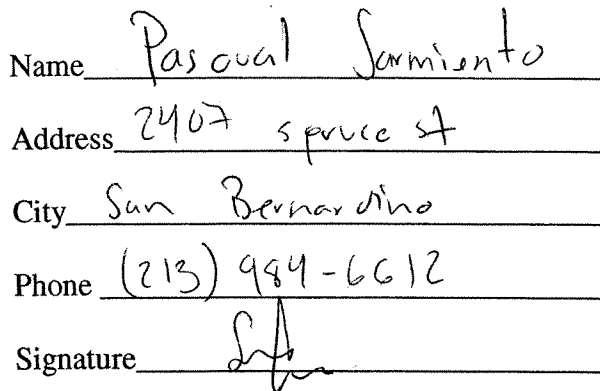 Name Pascual Sarmiento
Address 2407 spruce st
City San Bernardino
Phone (213) 984-6612
Signature